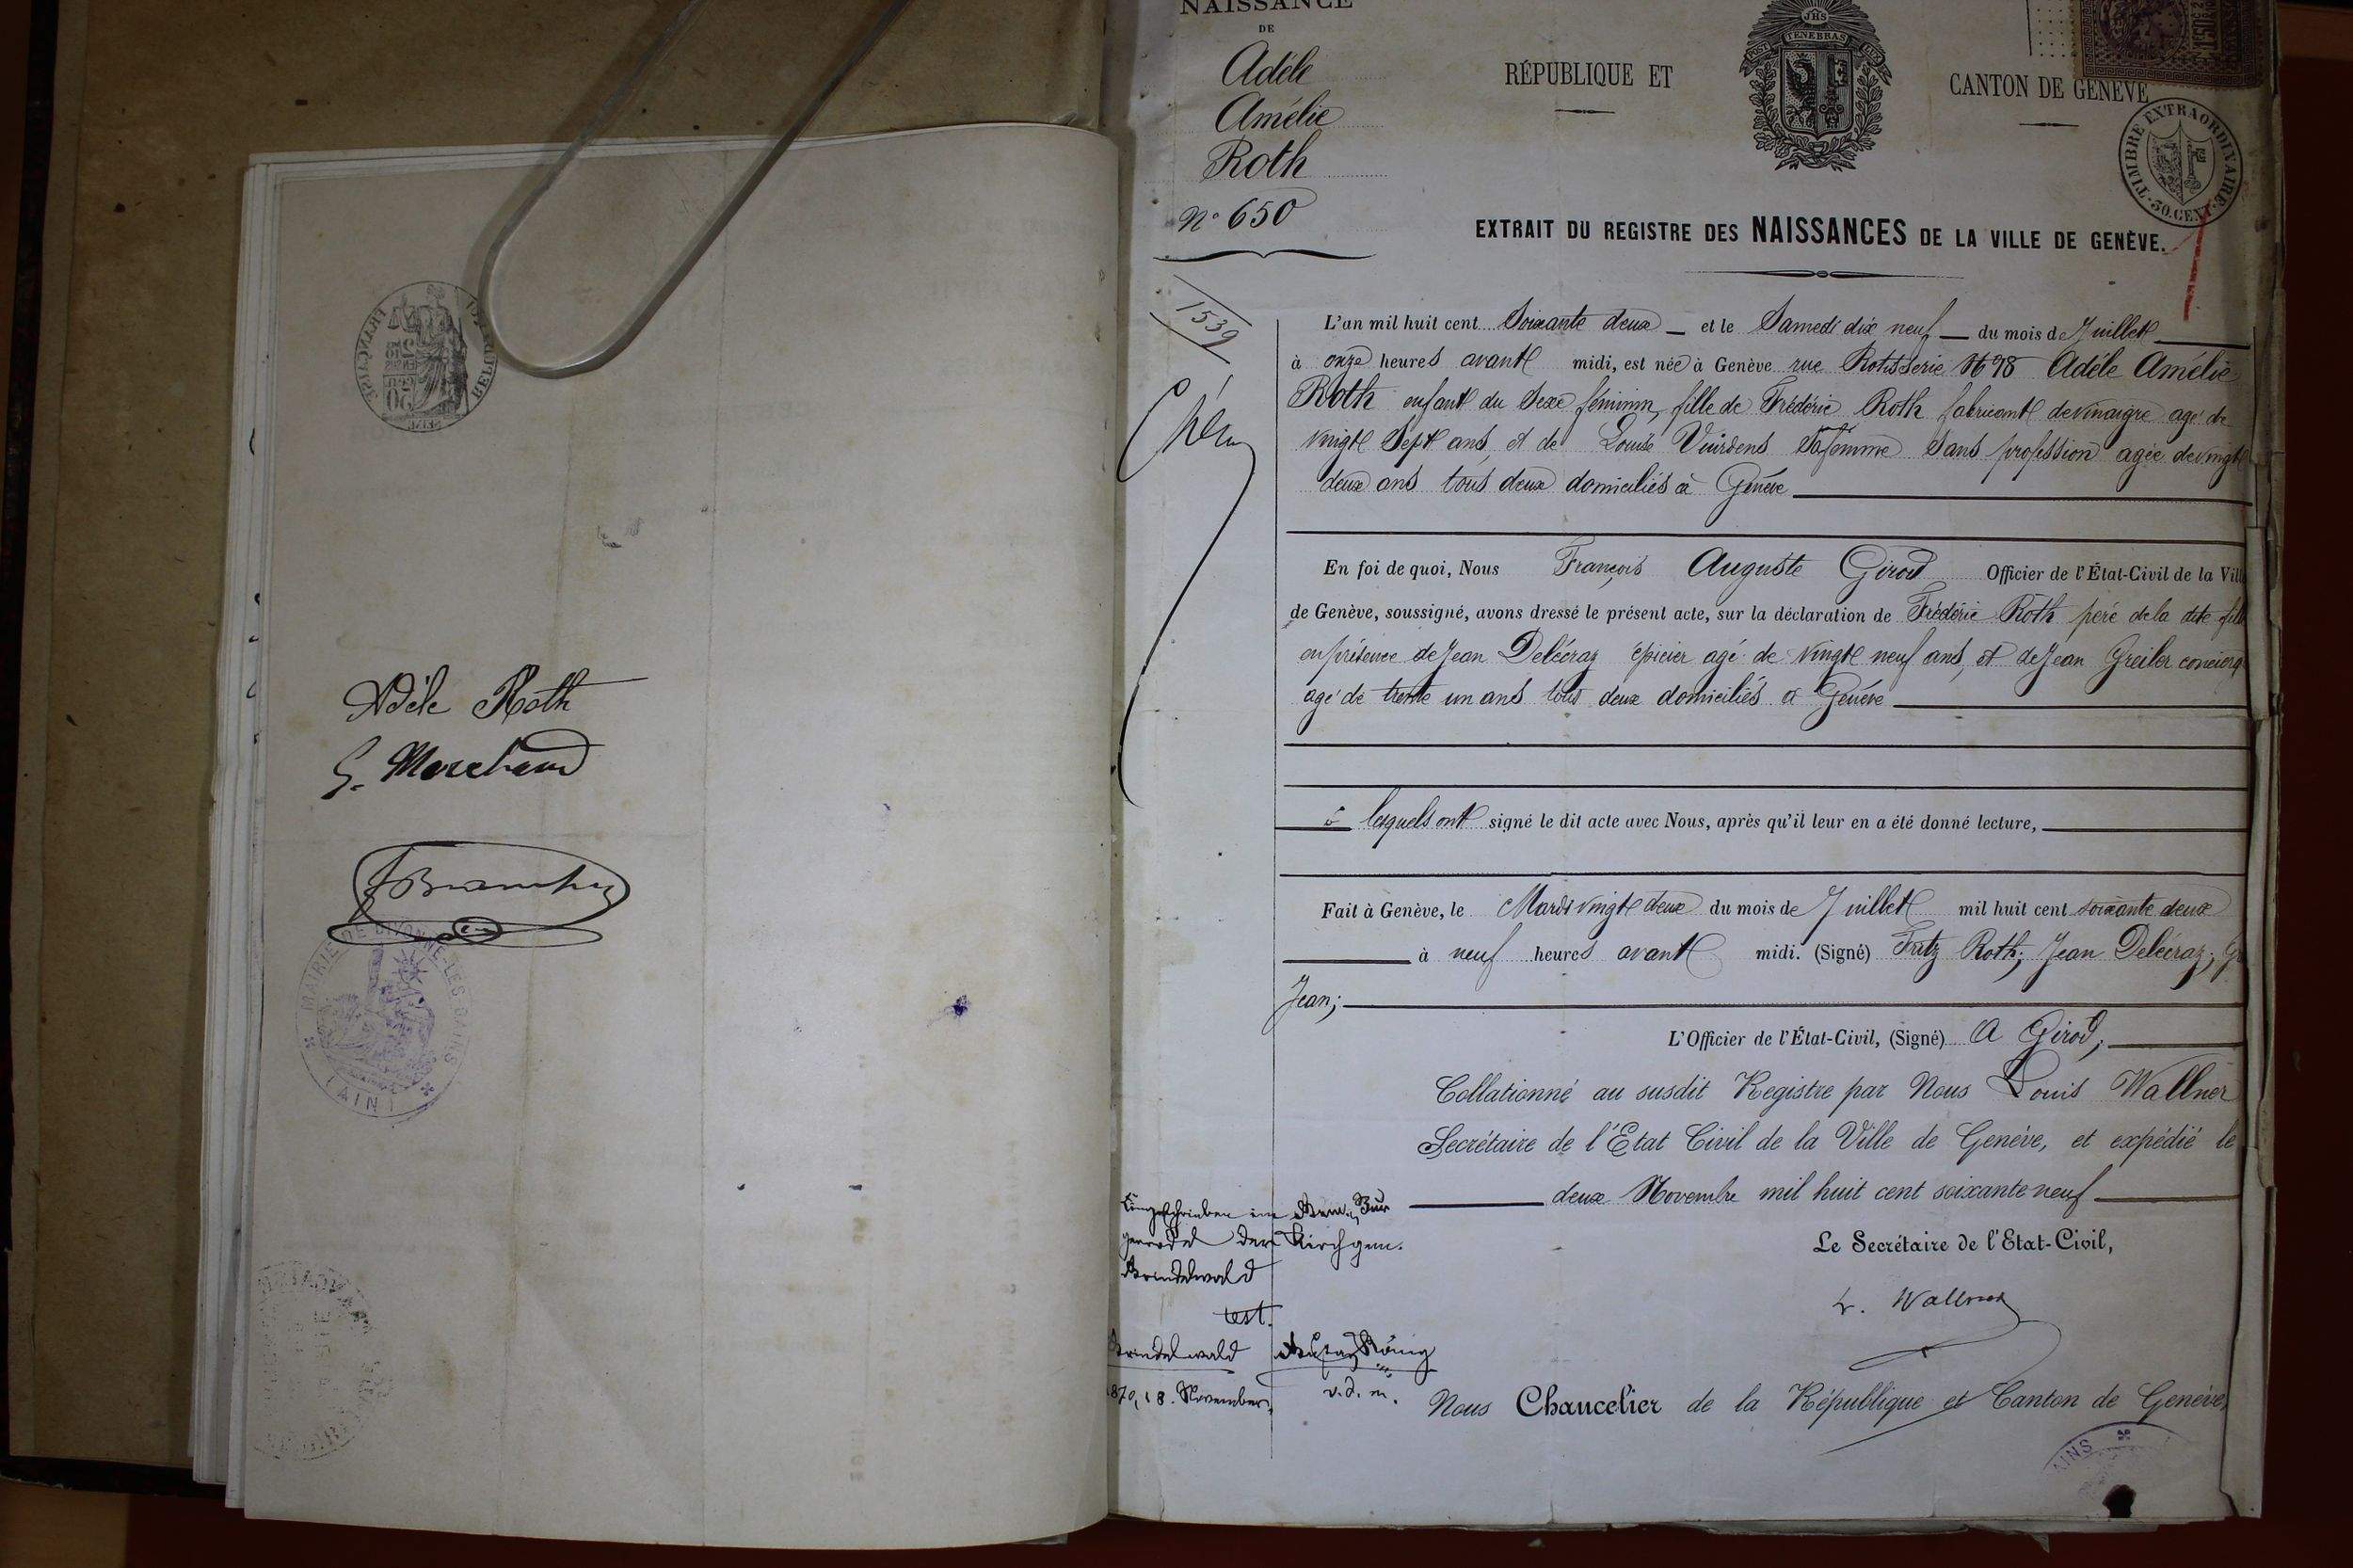 Adèle Roth
G. Marchand
MAIRIE DE DIVONNE-LES-BAINS
(AIN)
NAISSANCE
DE
Adèle
Amélie
Roth
N° 650
1539
RÉPUBLIQUE ET
POST TENEBRAS LUX
JHS
CANTON DE GENÈVE
TIMBRE EXTRAORDINAIRE
50. CENT.
EXTRAIT DU REGISTRE DES NAISSANCES DE LA VILLE DE GENÈVE.
L'an mil huit cent Soixante deux et le Samedi dix neuf du mois de Juillet
à onze heures avant midi, est née à Genève rue Rotisserie N° 98 Adèle Amélie
Roth enfant du Sexe féminin, fille de Frédéric Roth fabricant de vinaigre agé de
vingt Sept ans, et de Louise Vuirdens Sa femme Sans profession agée de vingt
deux ans tous deux domiciliés à Genève
En foi de quoi, Nous François Auguste Girod Officier de l'État-Civil de la Vill
de Genève, soussigné, avons dressé le présent acte, sur la déclaration de Frédéric Roth père de la dite fill
en présence de Jean Delécraz épicier agé de vingt neuf ans, et de Jean Greiler concierg
agé de trente un ans tous deux domiciliés à Genève
lesquels ont signé le dit acte avec Nous, après qu'il leur en a été donné lecture,
Fait à Genève, le Mardi vingt deux du mois de Juillet mil huit cent soixante deux
à neuf heures avant midi. (Signé) Fritz Roth; Jean Delécraz; G
Jean;
L'Officier de l'État-Civil, (Signé) A Girod;
Collationné au susdit Registre par Nous Louis Wallner
Secrétaire de l'Etat Civil de la Ville de Genève, et expédié le
deux Novembre mil huit cent soixante neuf
Le Secrétaire de l'Etat-Civil,
L. Wallner
Eingeschrieben im
der Kirchgem.
Grindelwald
test.
Grindelwald
1870, 18. November.
König
v. d. m.
Nous Chancelier de la République et Canton de Genève,
AINS